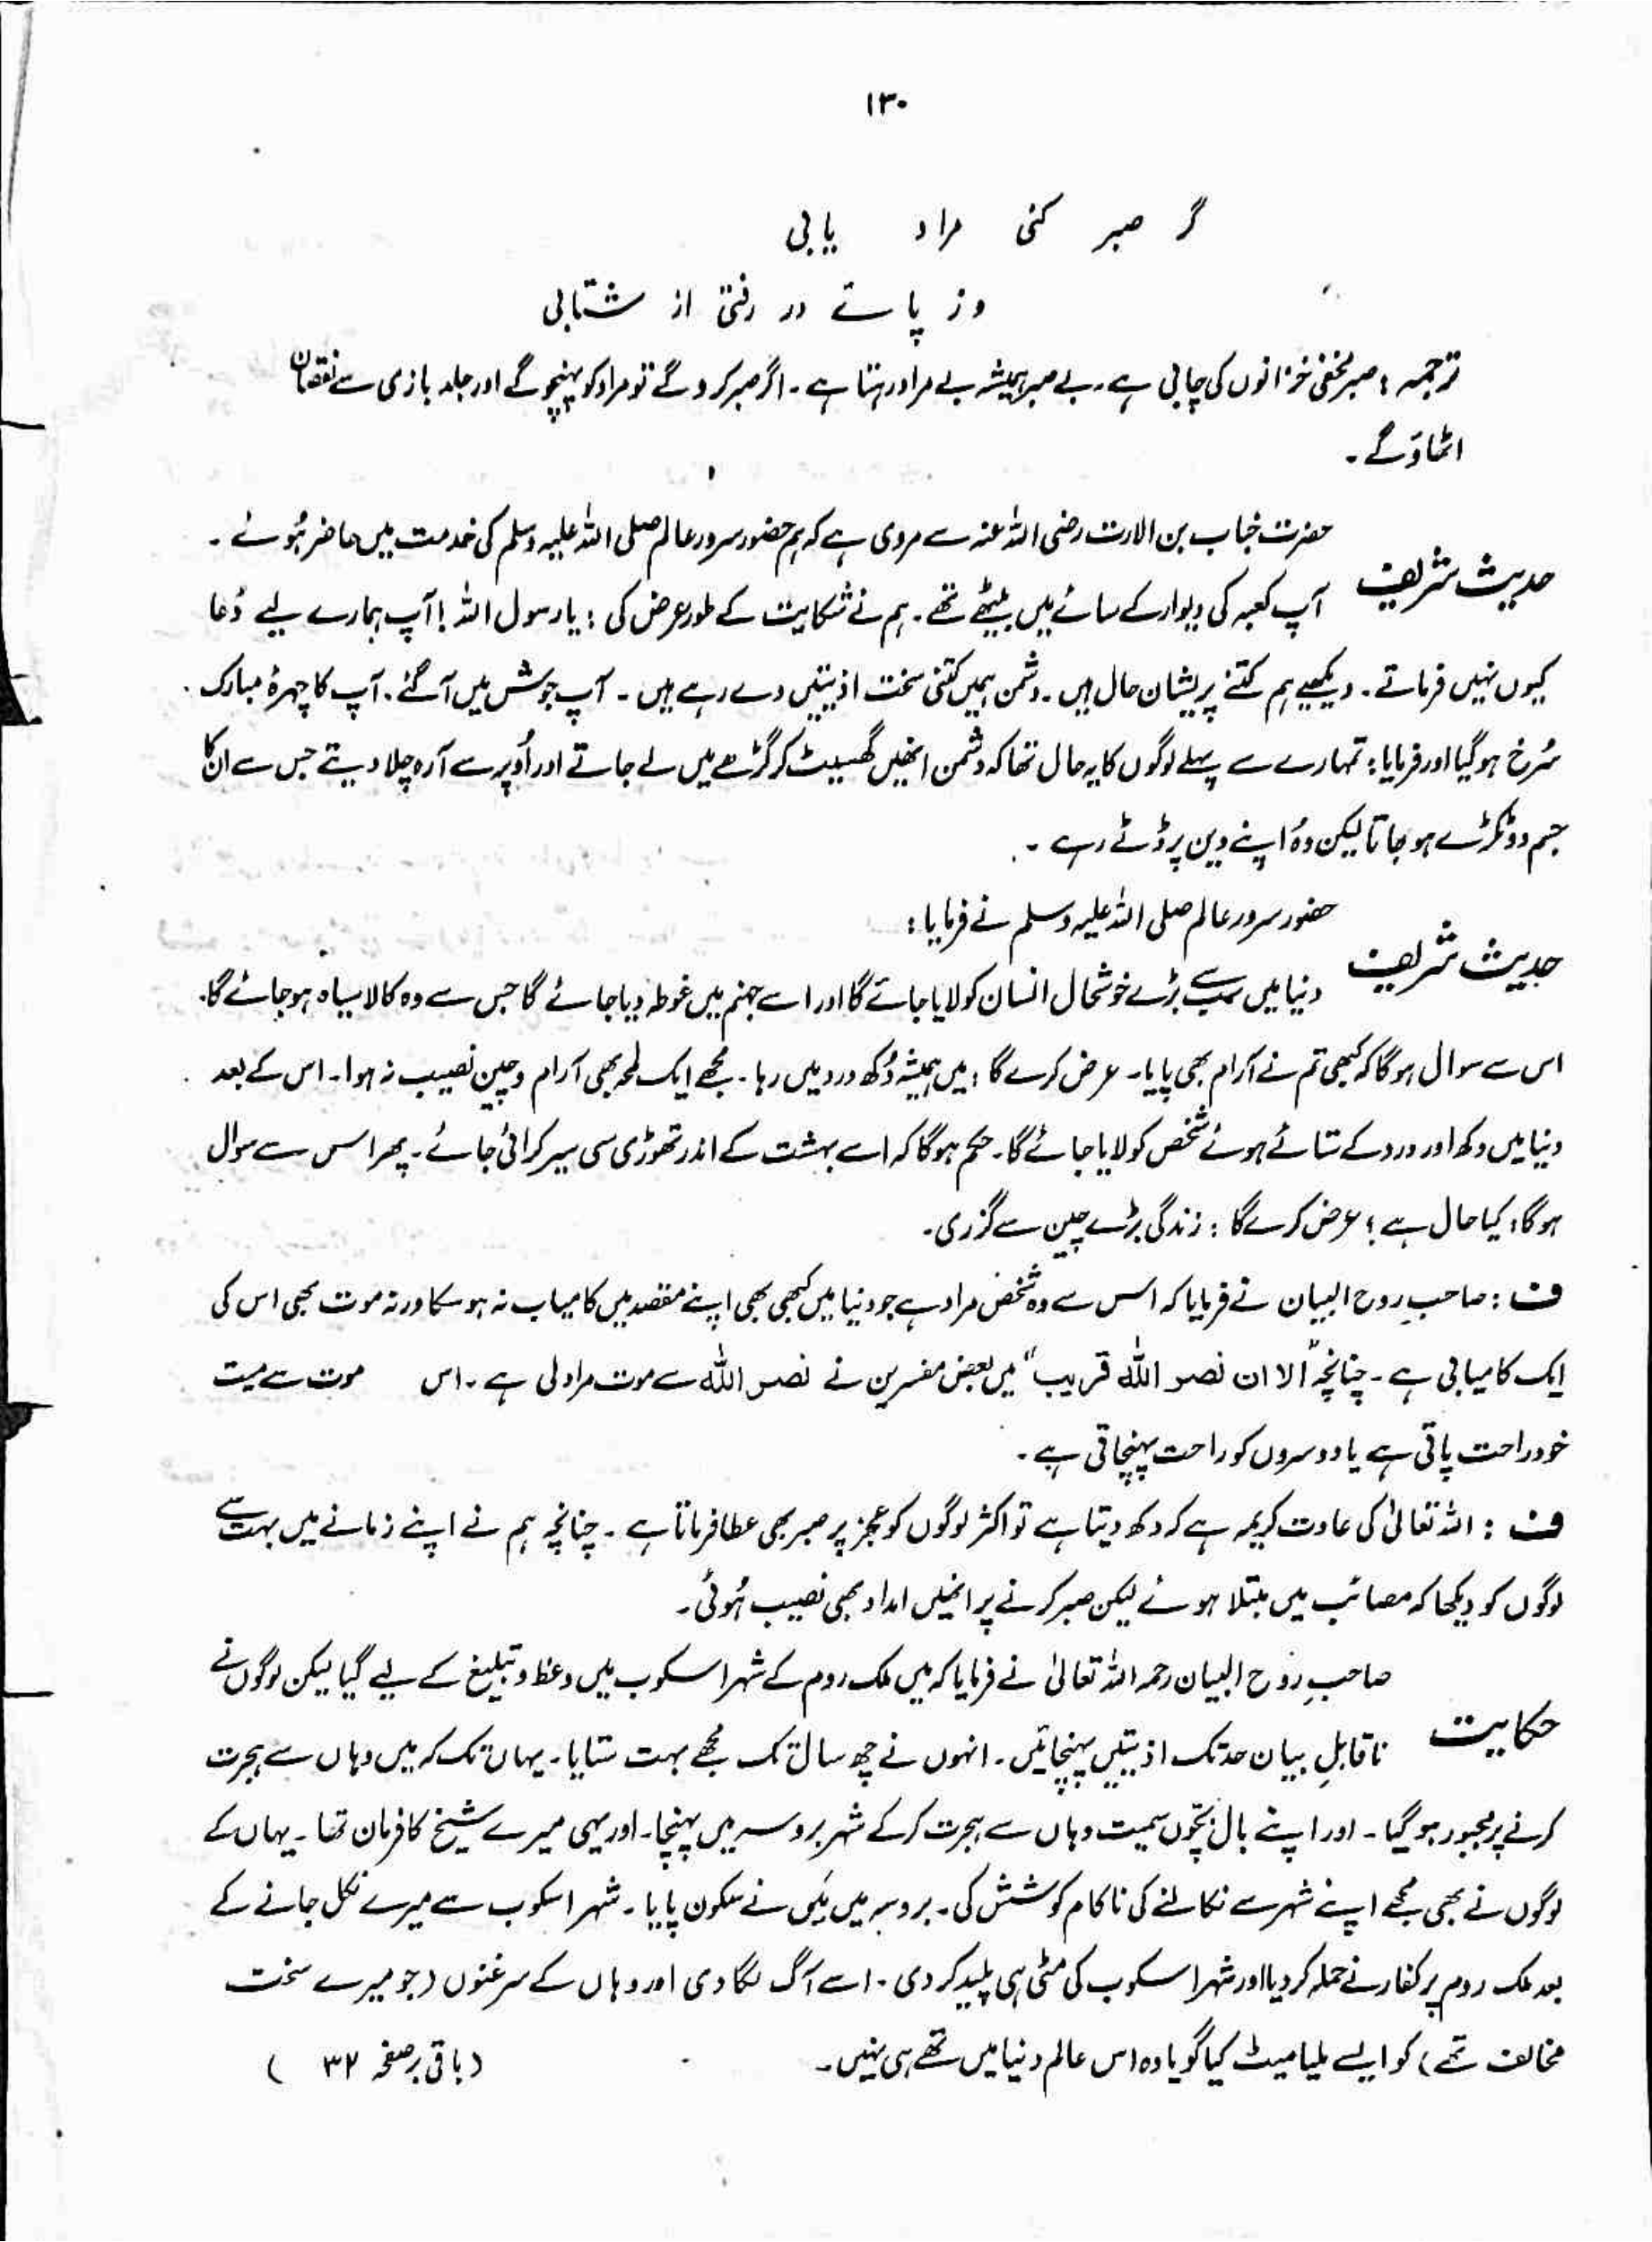 ۱۳۰
گر صبر کنی مراد یابی
وز پائے در رفتی از شتابی
ترجمہ : صبر مخفی خزانوں کی چابی ہے۔ بے صبر ہمیشہ بے مراد رہتا ہے۔ اگر صبر کرو گے تو مراد کو پہنچو گے اور جلد بازی سے نقصان
اٹھاؤ گے۔
حضرت خباب بن الارت رضی اللہ عنہ سے مروی ہے کہ ہم حضور سرور عالم صلی اللہ علیہ وسلم کی خدمت میں حاضر ہُوئے۔
حدیث شریف
آپ کعبہ کی دیوار کے سائے میں بیٹھے تھے۔ ہم نے شکایت کے طور عرض کی : یا رسول اللہ ! آپ ہمارے لیے دُعا
کیوں نہیں فرماتے۔ دیکھیے ہم کتنے پریشان حال ہیں۔ دشمن ہمیں کتنی سخت اذیتیں دے رہے ہیں۔ آپ جوش میں آ گئے۔ آپ کا چہرۂ مبارک
سُرخ ہو گیا اور فرمایا : تمہارے سے پہلے لوگوں کا یہ حال تھا کہ دشمن انھیں گھسیٹ کر گڑھے میں لے جاتے اور اُوپر سے آرہ چلا دیتے جس سے ان کا
جسم دو ٹکڑے ہو جاتا لیکن وہُ اپنے دین پر ڈٹے رہے۔
حضور سرور عالم صلی اللہ علیہ وسلم نے فرمایا :
حدیث شریف
دنیا میں سب سے بڑے خوشحال انسان کو لایا جائے گا اور اسے جہنم میں غوطہ دیا جائے گا جس سے وہ کالا سیاہ ہو جائے گا۔
اس سے سوال ہو گا کہ کبھی تم نے آرام بھی پایا۔ عرض کرے گا : میں ہمیشہ دُکھ درد میں رہا۔ مجھے ایک لمحہ بھی آرام و چین نصیب نہ ہوا۔ اس کے بعد
دنیا میں دکھ اور درد کے ستائے ہوئے شخص کو لایا جائے گا۔ حکم ہو گا کہ اسے بہشت کے اندر تھوڑی سی سیر کرائی جائے۔ پھر اس سے سوال
ہو گا : کیا حال ہے ؟ عرض کرے گا : زندگی بڑے چین سے گزری۔
ف : صاحبِ روح البیان نے فرمایا کہ اس سے وہ شخص مراد ہے جو دنیا میں کبھی بھی اپنے مقصد میں کامیاب نہ ہو سکا ورنہ موت بھی اس کی
ایک کامیابی ہے۔ چنانچہ "الا ان نصر اللہ قریب" میں بعض مفسرین نے نصر اللہ سے موت مراد لی ہے۔ اس موت سے میت
خود راحت پاتی ہے یا دوسروں کو راحت پہنچاتی ہے۔
ف : اللہ تعالیٰ کی عادت کریمہ ہے کہ دکھ دیتا ہے تو اکثر لوگوں کو عجز پر صبر بھی عطا فرماتا ہے۔ چنانچہ ہم نے اپنے زمانے میں بہت سے
لوگوں کو دیکھا کہ مصائب میں مبتلا ہوئے لیکن صبر کرنے پر انھیں امداد بھی نصیب ہُوئی۔
صاحبِ روح البیان رحمہ اللہ تعالیٰ نے فرمایا کہ میں ملک روم کے شہر اسکوب میں وعظ و تبلیغ کے لیے گیا لیکن لوگوں نے
حکایت
ناقابلِ بیان حد تک اذیتیں پہنچائیں۔ انہوں نے چھ سال تک مجھے بہت ستایا۔ یہاں تک کہ میں وہاں سے ہجرت
کرنے پر مجبور ہو گیا۔ اور اپنے بال بچّوں سمیت وہاں سے ہجرت کر کے شہر بروسہ میں پہنچا۔ اور یہی میرے شیخ کا فرمان تھا۔ یہاں کے
لوگوں نے بھی مجھے اپنے شہر سے نکالنے کی ناکام کوشش کی۔ بروسہ میں مَیں نے سکون پایا۔ شہر اسکوب سے میرے نکل جانے کے
بعد ملک روم پر کفار نے حملہ کر دیا اور شہر اسکوب کی مٹی ہی پلید کر دی۔ اسے آگ لگا دی اور وہاں کے سرغنوں (جو میرے سخت
مخالف تھے) کو ایسے ملیامیٹ کیا گویا وہ اس عالم دنیا میں تھے ہی نہیں۔ (باقی بر صفحہ ۳۲ )